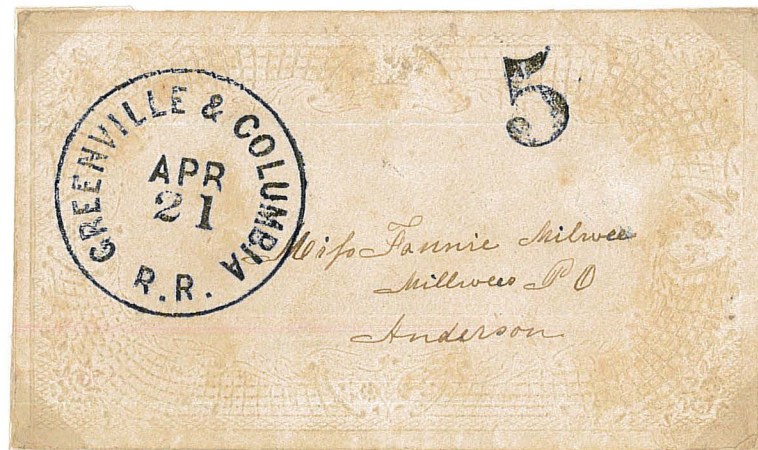 GREENVILLE & COLUMBIA
R.R.
APR
21
5
Miss Fannie Milwee
Millwees P O
Anderson